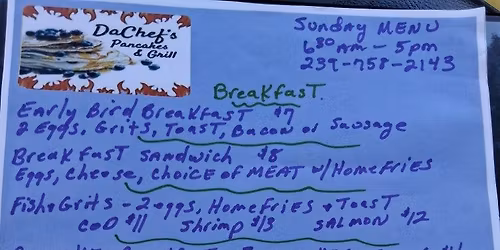 DaChef's
Pancakes
& Grill
Sunday MENU
6:30 AM - 5pm
239-758-2143
BreakfasT.
Early Bird BreakfasT $7
2 Eggs, Grits, ToasT, Bacon or Sausage
BreakfasT Sandwich $8
Eggs, Cheese, Choice of MEAT w/HomeFries
Fish&Grits - 2 eggs, HomeFries + ToasT
COD $11 Shrimp $13 SALMON $12